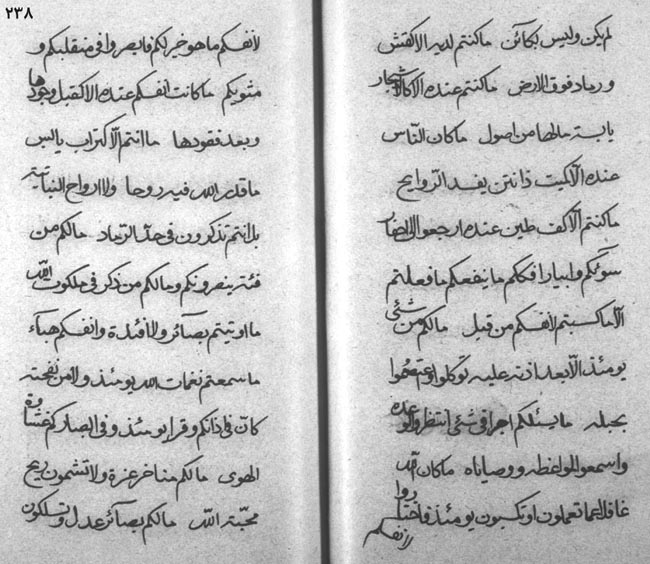 ٢٣٨
لم يكن وليس بكائن ماكنتم لديه الا كقش
ورماد فوق الارض ماكنتم عنده الا كالاشجار
يابسة مالها من اصول ماكان النّاس
عنده الّا كميت ذانتن يفسد الروايح
ماكنتم الّا كف طين عنده ارجعوا الى
سوئكم وابيار افككم ما ينفعكم ما فعلتم
الّا ماكسبتم لانفسكم من قبل مالكم من شئ
يومئذ الّا بعد اذنه عليه توكلوا واعتصموا
بحبله مايسئلكم اجرا فى شئ انتظروا لوعده
واسمعوا لمواعظه ووصاياه ماكان الله
غافلا عما تعملون او تكسبون يومئذ فاختاروا
لانفسكم
لانفسكم ماهو خير لكم فابصروا فى منقلبكم و
مثويكم ماكانت انفسكم عنده الا كقبل وجودها
وبعد فقودها ماانتم الّا كتراب يابس
ماقدر الله فيه روحا ولا ارواح النباتية
بل انتم تذكرون فى حدّ الرّماد مالكم من
فئة ينصرونكم ومالكم من ذكر فى ملكوت الله
مااوتيتم بصآئر ولا افئدة وانفسكم هبآء
ماسمعتم نغمات الله يومئذ ولا من نفحته
كانّ فى اذانكم وقرا يومئذ وفى ابصاركم غشاوة
الهوى مالكم مناخر عزة ولا تشمون ريح
محبّة الله مالكم بصآئر عدل وتسلكون